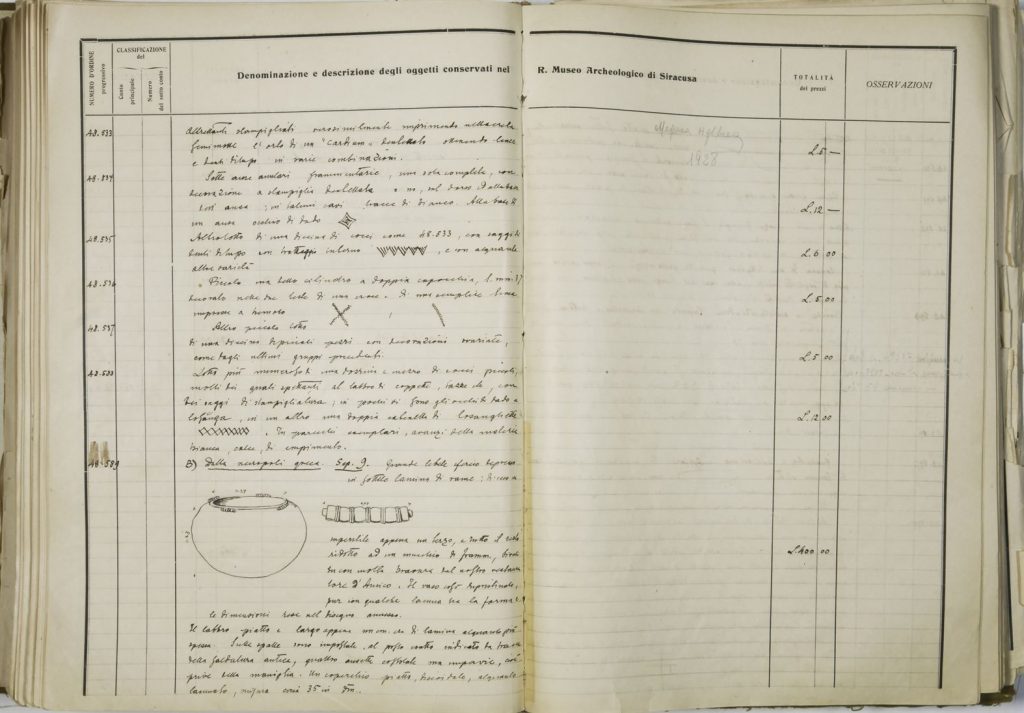 NUMERO D'ORDINE progressivo
CLASSIFICAZIONE del
Conto principale
Numero del sotto conto
Denominazione e descrizione degli oggetti conservati nel R. Museo Archeologico di Siracusa
TOTALITÀ dei prezzi
OSSERVAZIONI
Megara Hyblaea
1928
48.533 stampigliati verosimilmente imprimendo nella creta L. 5 —
l'orlo di un "Cardium" dentellato
e denti di lupo in varie combinazioni.
48.534 Sette anse anulari frammentarie, una sola completa, con
decorazione a stampiglia dentellata o no, sul dorso
ansa; in taluni casi tracce di bianco. Alla base di L. 12 —
un ansa occhio di dado
48.535 Altro lotto di una diecina di cocci come 48.533, con saggi di
denti di lupo con tratteggio interno , e con alquante L. 6 00
altre varietà
48.536 Piccolo cilindro a doppia capocchia, l. mm. 37
decorato nelle due teste di una croce, di linea L. 5.00
impressa a
48.537 Altro piccolo lotto
di una diecina di piccoli pezzi con decorazioni svariate,
come dagli ultimi gruppi precedenti. L. 5 00
48.538 Lotto più numeroso di una dozzina e mezzo di cocci piccoli,
molti dei quali spettanti al labbro di coppette, tazze ecc., con
dei saggi di stampigliatura; in pochi vi sono gli occhi di dado a
losanga, in un altro una doppia catenella di losanghette L. 12 00
. In parecchi esemplari, avanzi della materia
bianca, calce, di empimento.
48.539 B) Dalla necropoli greca. Sep. 9. Grande lebete sferico depresso
in sottile lamina di rame;
appena un terzo, e tutto il resto
ridotto ad un mucchio di framm., L. 400 00
con molta bravura dal nostro
D'Amico. Il vaso così ripristinato,
pur con qualche lacuna ha la forma e
le dimensioni rese nel disegno annesso.
Il labbro piatto e largo appena mm. di lamina alquanto più
spessa. Sulle spalle sono impostate, al posto esatto indicato da tracce
della saldatura antica, quattro ansette costolate ma imparvie,
prive della maniglia. Un coperchio piatto, discoidale, alquanto
lacunato, misura circa 35 in Dm.